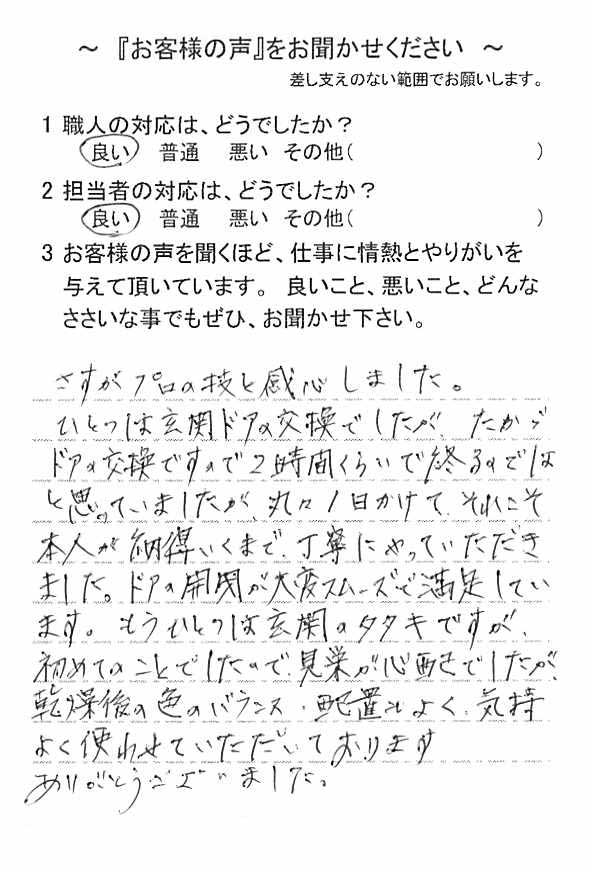 ～ 『お客様の声』をお聞かせください ～
差し支えのない範囲でお願いします。
1 職人の対応は、どうでしたか？
良い 普通 悪い その他( )
2 担当者の対応は、どうでしたか？
良い 普通 悪い その他( )
3 お客様の声を聞くほど、仕事に情熱とやりがいを
与えて頂いています。 良いこと、悪いこと、どんな
ささいな事でもぜひ、お聞かせ下さい。
さすがプロの技と感心しました。
ひとつは玄関ドアの交換でしたが、たかが
ドアの交換ですので2時間くらいで終るのでは
と思っていましたが、丸々1日かけて、それこそ
本人が納得いくまで、丁寧にやっていただき
ました。ドアの開閉が大変スムーズで満足してい
ます。もうひとつは玄関のタタキですが、
初めてのことでしたので、見栄が心配でしたが、
乾燥後の色のバランス・配置もよく、気持
よく使わせていただいております
ありがとうございました。